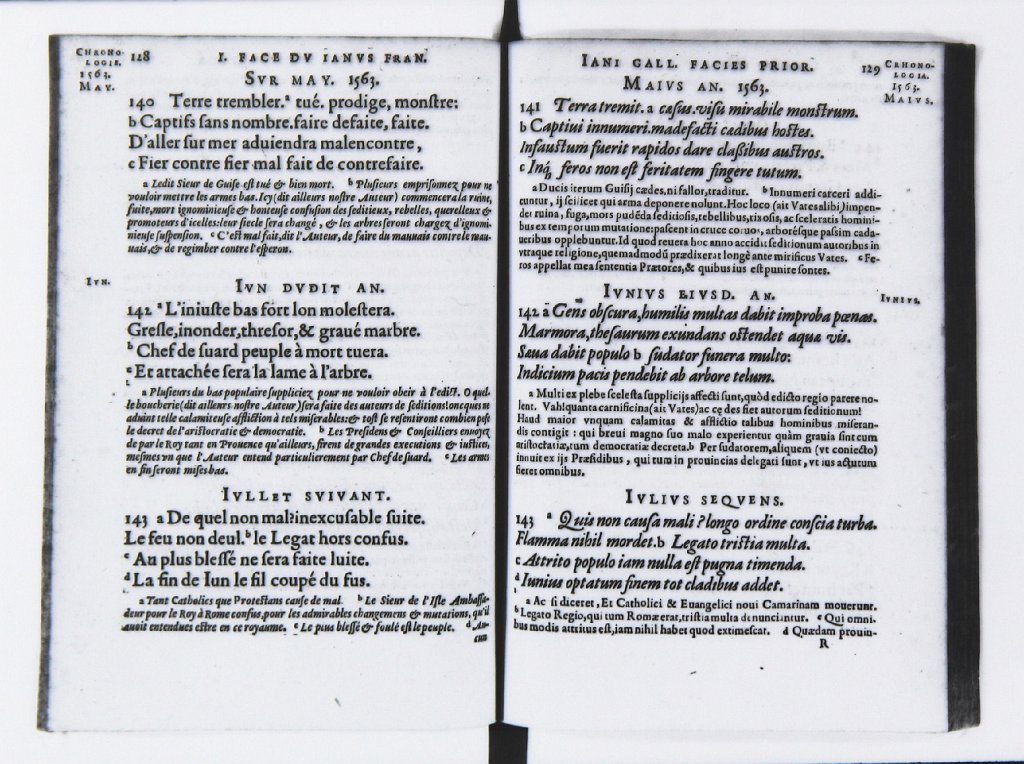 CHRONO-
LOGIE.
1563.
MAY.
128
I. FACE DV IANVS FRAN.
SVR MAY. 1563.
140 Terre trembler.ᵃ tué. prodige, monſtre:
b Captifs ſans nombre.faire defaite, faite.
D'aller ſur mer aduiendra malencontre,
c Fier contre fier mal fait de contrefaire.
a Ledit Sieur de Guiſe eſt tué & bien mort. ᵇ Pluſieurs empriſonnez pour ne
vouloir mettre les armes bas. Icy (dit ailleurs noſtre Auteur) commencera la ruine,
fuite, mort ignominieuſe & honteuſe confuſion des ſeditieux, rebelles, querelleux &
promoteurs d'icelles: leur ſiecle ſera changé, & les arbres ſeront chargez d'ignomi-
nieuſe ſuſpenſion. ᶜ C'eſt mal fait, dit l'Auteur, de faire du mauuais contre le mau-
uais, & de regimber contre l'eſperon.
IVN.
IVN DVDIT AN.
142 ᵃ L'iniuſte bas fort lon moleſtera.
Greſle, inonder, threſor, & graué marbre.
ᵇ Chef de ſuard peuple à mort tuera.
ᶜ Et attachée ſera la lame à l'arbre.
a Pluſieurs du bas populaire ſuppliciez pour ne vouloir obeir à l'edict. O quel-
le boucherie (dit ailleurs noſtre Auteur) ſera faite des auteurs de ſeditions! oncques ne
aduint telle calamiteuſe affliction à tels miſerables: & toſt ſe reſentiront combien peſe
le decret de l'ariſtocratie & democratie. ᵇ Les Preſidens & Conſeillers enuoyez
de par le Roy tant en Prouence qu'ailleurs, firent de grandes executions & iuſtices,
meſmes vn que l'Auteur entend particulierement par Chef de ſuard. ᶜ Les armes
en fin ſeront miſes bas.
IVLLET SVIVANT.
143 a De quel non mal? inexcuſable ſuite.
Le feu non deul.ᵇ le Legat hors confus.
ᶜ Au plus bleſſé ne ſera faite luite.
ᵈ La fin de Iun le fil coupé du fus.
a Tant Catholics que Proteſtans cauſe de mal. ᵇ Le Sieur de l'Iſle Ambaſſa-
deur pour le Roy à Rome confus, pour les admirables changemens & mutations, qu'il
auoit entendues eſtre en ce royaume. ᶜ Le plus bleſſé & foulé eſt le peuple. ᵈ Au-
cun
IANI GALL. FACIES PRIOR.
129
CRHONO-
LOGIA.
1563.
MAIVS.
MAIVS AN. 1563.
141 Terra tremit. a caſus.viſu mirabile monſtrum.
b Captiui innumeri.madefacti cædibus hoſtes.
Infauſtum fuerit rapidos dare claſſibus auſtros.
ᶜ Inq́, feros non eſt feritatem fingere tutum.
a Ducis iterum Guiſij cædes, ni fallor, traditur. ᵇ Innumeri carceri addi-
cuntur, ij ſcilicet qui arma deponere nolunt. Hoc loco (ait Vates alibi) impen-
det ruina, fuga, mors pudẽda ſeditioſis, rebellibus, rixoſis, ac ſceleratis homini-
bus ex temporum mutatione: paſcent in cruce coruos, arboréſque paſſim cada-
ueribus opplebuntur. Id quod reuera hoc anno accidit ſeditionum autoribus in
vtraque religione, quemadmodũ prædixerat longè ante mirificus Vates. ᶜ Fe-
ros appellat mea ſententia Prætores, & quibus ius eſt punire ſontes.
IVNIVS EIVSD. AN.
IVNIVS.
142 a Gens obſcura, humilis multas dabit improba pœnas.
Marmora, theſaurum exundans oſtendet aquæ vis.
Sæua dabit populo b ſudator funera multo:
Indicium pacis pendebit ab arbore telum.
a Multi ex plebe ſceleſta ſupplicijs affecti ſunt, quòd edicto regio parere no-
lent. Vah! quanta carnificina (ait Vates) ac cędes fiet autorum ſeditionum!
Haud maior vnquam calamitas & afflictio talibus hominibus miſeran-
dis contigit : qui breui magno ſuo malo experientur quàm grauia ſint cum
ariſtocratiæ, tum democratiæ decreta. b Per ſudatorem, aliquem (vt coniecto)
innuit ex ijs Præſidibus, qui tum in prouincias delegati ſunt, vt ius acturum
fieret omnibus.
IVLIVS SEQVENS.
143 ᵃ Quis non cauſa mali ? longo ordine conſcia turba.
Flamma nihil mordet. b Legato triſtia multa.
c Attrito populo iam nulla eſt pugna timenda.
ᵈ Iunius optatum finem tot cladibus addet.
a Ac ſi diceret, Et Catholici & Euangelici noui Camarinam mouerunt.
ᵇ Legato Regio, qui tum Romæ erat, triſtia multa denunciantur. ᶜ Qui omni-
bus modis attritus eſt, iam nihil habet quod extimeſcat. d Quædam prouin-
R